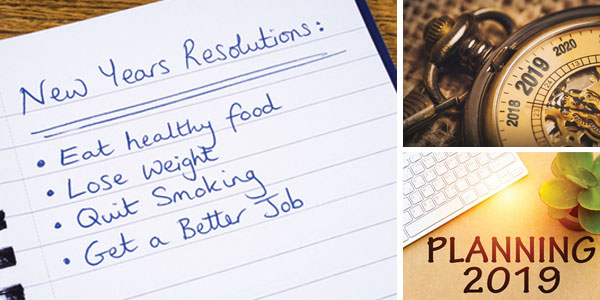 New Years Resolutions:
• Eat healthy food
• Lose Weight
• Quit Smoking
• Get a Better Job
2018 2019 2020
PLANNING
2019